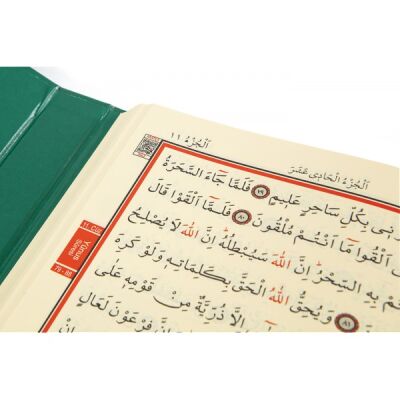 اَلْجُزْءُ الْحَادِى عَشَرَ
اَلْجُزْءُ ١١
بِكُلِّ سَاحِرٍ عَلٖيمٍ ٧٩ فَلَمَّا جَٓاءَ السَّحَرَةُ
اَلْقُوا مَٓا اَنْتُمْ مُلْقُونَ ٨٠ فَلَمَّٓا اَلْقَوْا قَالَ
بِهِ السِّحْرُ اِنَّ اللّٰهَ سَيُبْطِلُهُ اِنَّ اللّٰهَ لَا يُصْلِحُ
٨١ وَيُحِقُّ اللّٰهُ الْحَقَّ بِكَلِمَاتِهٖ وَلَوْ كَرِهَ
اِلَّا ذُرِّيَّةٌ مِنْ قَوْمِهٖ عَلٰى
فِرْعَوْنَ لَعَالٍ
11. CÜZ
Yûnus
Sûresi
79 - 88